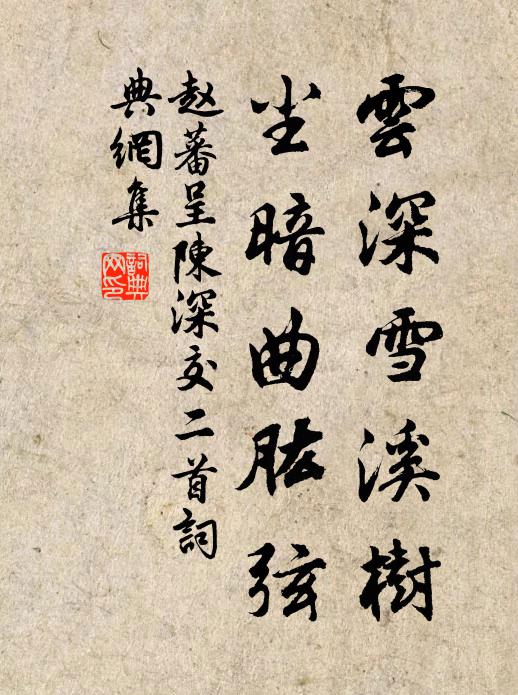 雲深雪溪樹
尘暗曲肱弦
赵蕃呈陳深交二首詞
典網集
詞典
网印